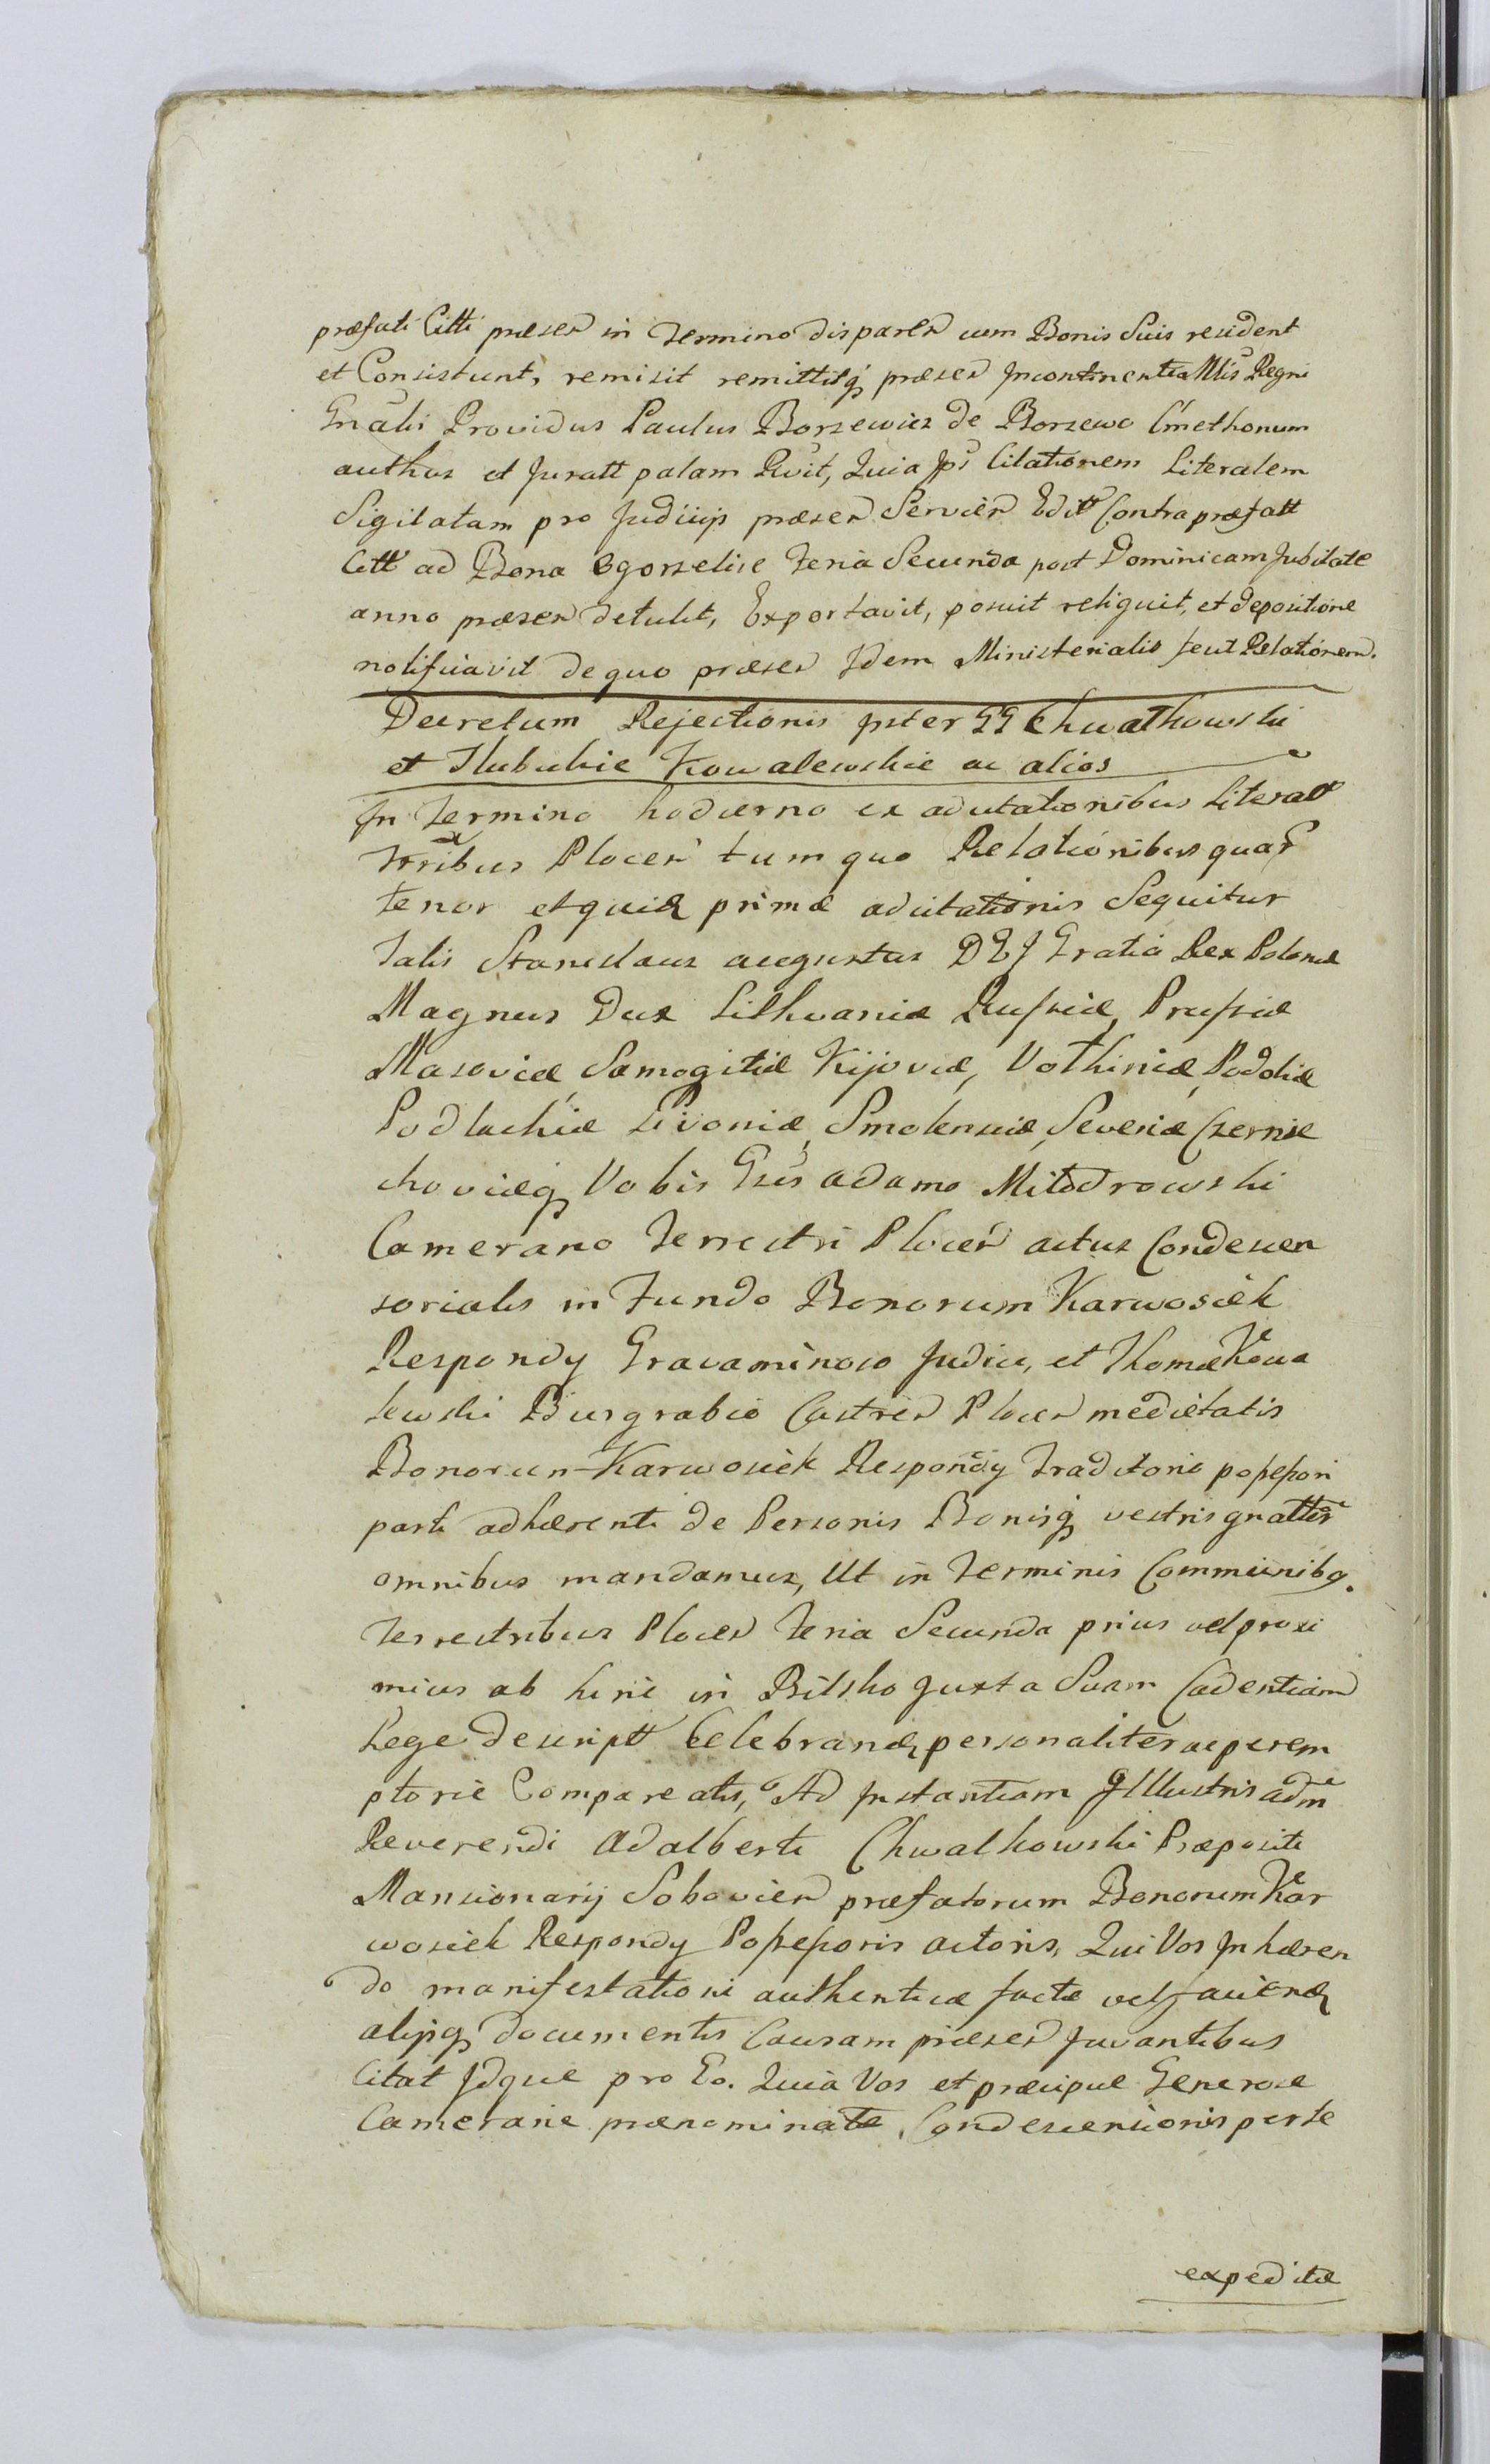 præfati Citti præsen in Termino disparen cum Bonis Suis resident
et Consistunt, remisit remittitq præsen Incontinentia Mlis Regni
Gnalis Providus Paulus Borzewicz de Borzewo Cmethonum
authus et Juratt palam Rvit, Quia Ipse Citationem Literalem
Sigilatam pro Judicijs præsen Servien Editt Contra præfatt
Citt ad Bona Ogorzelice Feria Secunda post Dominicam Jubilate
anno præsen detulit, Exportavit, posuit reliquit, et depositione
notificavit de quo præsen Idem Ministerialis fecit Relationem.
Decretum Rejectionis Inter GG Chwalkowski
et Kowalewskie ac alios
In Termino hodierno ex adcitationibus Literatt
Trribus Plocen tum quo Relationibus quar
tenor et quidem primæ adcitationis Sequitur
Talis Stanislaus augustus DEI Gratia Rex Poloniæ
Magnus Dux Lithvaniæ Russiæ, Prussiæ
Masoviæ, Samogitiæ Kijoviæ, Volhiniæ, Podoliæ
Podlachiæ Livoniæ, Smolensciæ, Severiæ Czernie
choviæq Vobis Gsis adamo Mitodrowski
Camerario Terrestri Plocen actus Condescen
sorialis in Fundo Bonorum Karwosiek
Respondy Gravaminoso Judici, et Thomæ Kowa
lewski Burgrabio Castren Plocen medietatis
Bonorum Karwosiek Respondy Traditorio possessori
parti adhærenti de Personis Bonisq vestris gnatter
omnibus mandamus, Ut in Terminis Communibq.
Terrestribus Plocen Feria Secunda prius vel proxi
mius ab hinc in Bilsko Juxta Suam Cadentiam
Lege descriptt Celebrand personaliter ac perem
ptorie Compareatis, Ad Instantiam Illustris adm
Reverendi Adalberti Chwalkowski Præpositi
Mansionarij Sobovien præfatorum Bonorum Kar
wosiek Respondy Possessoris actoris, Qui Vos Inhæren
do manifestationi authenticæ factæ vel faciend
alijsq documentis Causam præsen Juvantibus
Citat Idque pro Eo. Quia Vos et præcipue Generose
Camerarie prænominate, Condescensionis parte
expeditæ